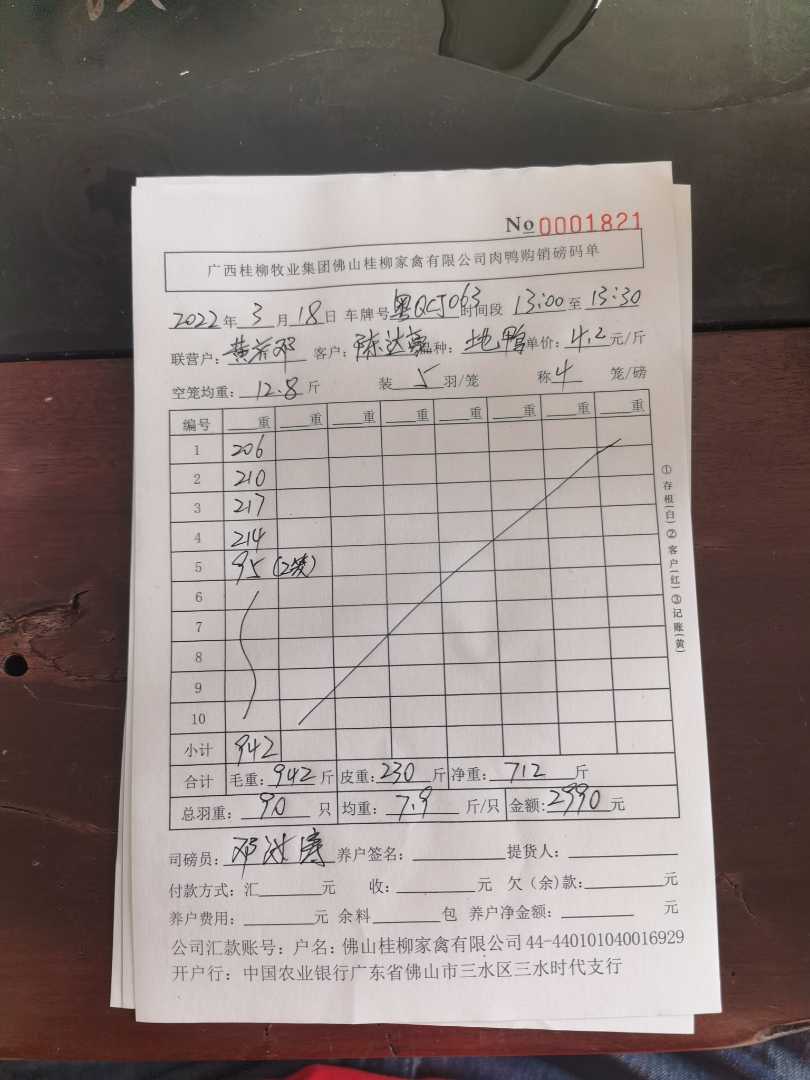 No 0001821
广西桂柳牧业集团佛山桂柳家禽有限公司肉鸭购销磅码单
2022年3月18日 车牌号粤QCJ063时间段 13:00至13:30
联营户: 黄芳邓 客户: 陈达豪 品种: 地鸭 单价: 4.2元/斤
空笼均重: 12.8斤 装 5 羽/笼 称 4 笼/磅
编号 重 重 重 重 重 重 重 重
1 206
2 210
3 217
4 214
5 95 (2笼)
6
7
8
9
10
小计 942
合计 毛重: 942斤 皮重: 230斤 净重: 712斤
总羽重: 90只 均重: 7.9斤/只 金额: 2990元
司磅员: 邓 养户签名: 提货人:
付款方式: 汇 元 收: 元 欠(余)款: 元
养户费用: 元 余料 包 养户净金额: 元
公司汇款账号: 户名: 佛山桂柳家禽有限公司 44-440101040016929
开户行: 中国农业银行广东省佛山市三水区三水时代支行
①存根(白)②客户(红)③记账(黄)